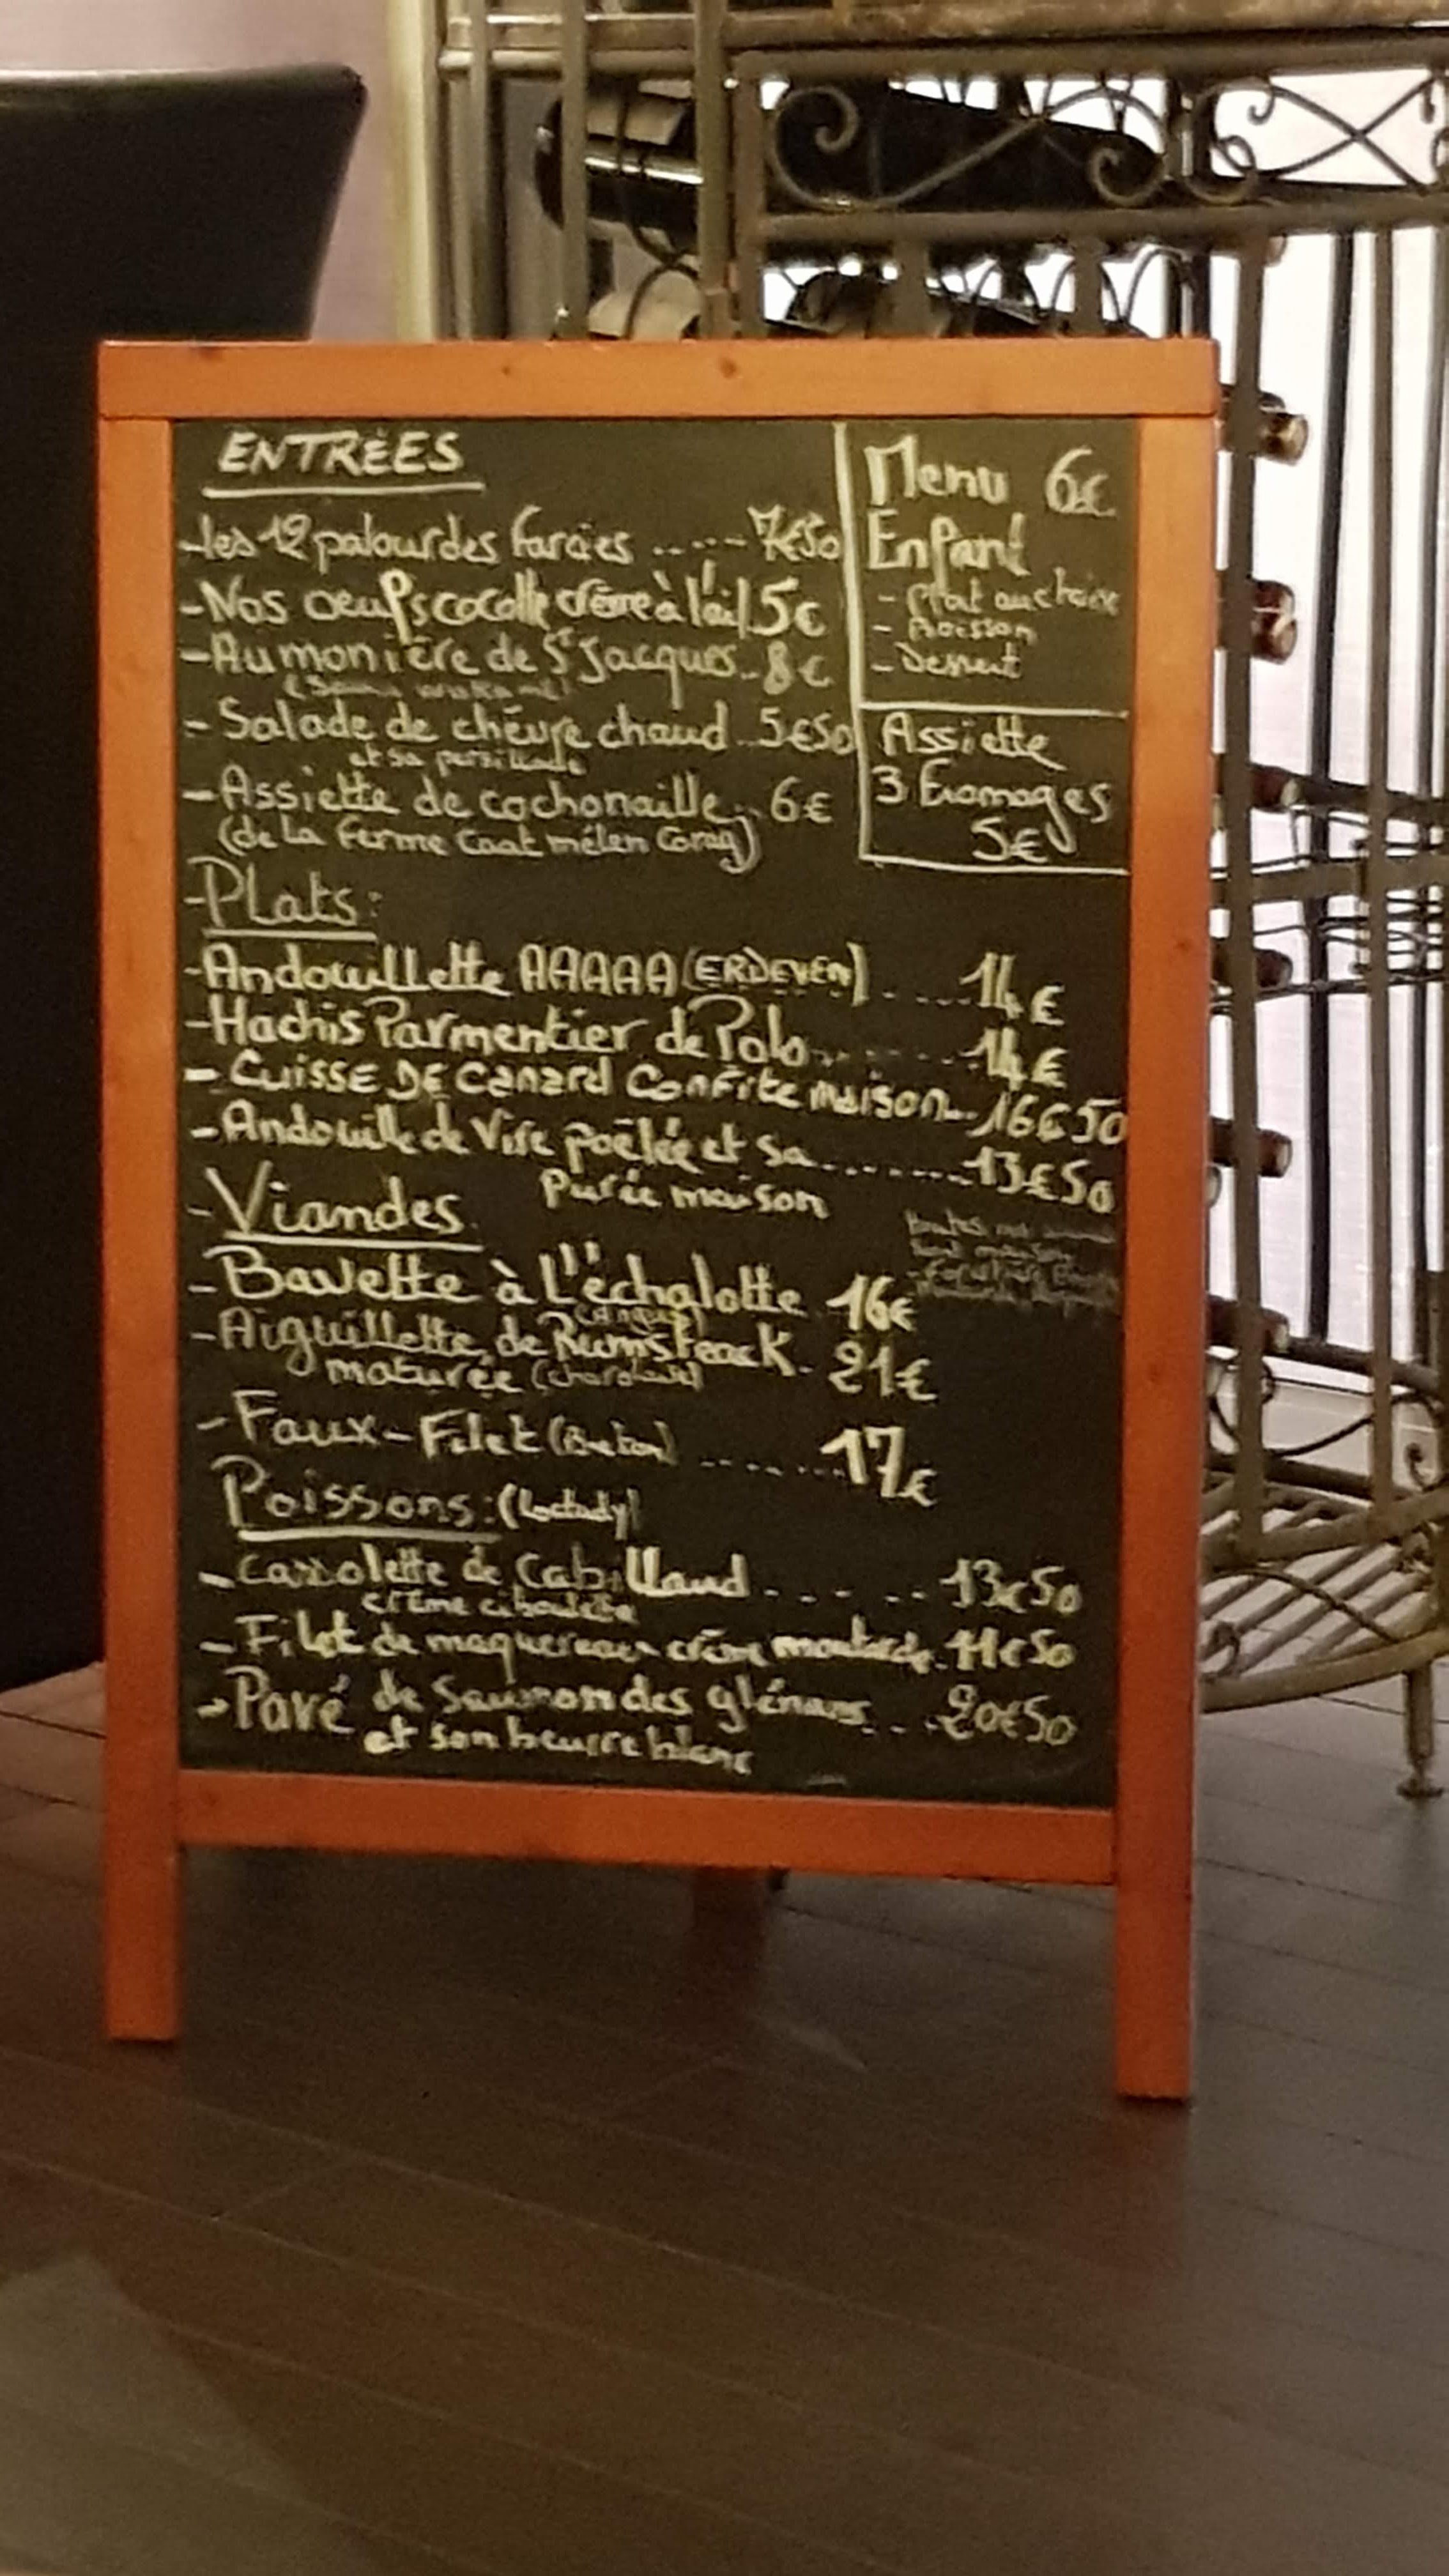 ENTRÉES
-les 12 palourdes farcies ..... 7€50
-Nos oeufs cocotte crème à l'ail 5€
-Aumonière de St Jacques.. 8€
-Salade de chèvre chaud ..5€50
et sa persillade
-Assiette de cochonaille.. 6€
(de la Ferme Coat mélen Coray)
Menu 6€
Enfant
- Plat au choix
- Boisson
- Dessert
Assiette
3 Fromages
5€
-Plats:
-Andouillette AAAAA (ERDEVEN) ..... 14€
-Hachis Parmentier de Polo....... 14€
- Cuisse DE Canard Confite maison... 16€50
-Andouille de Vire poêlée et sa......... 13€50
Purée maison
-Viandes
-Bavette à L'échalotte 16€
(Angus)
-Aiguillette de Rumsteack. 21€
maturée (charolaise)
-Faux-Filet (Breton) ....... 17€
Poissons: (Loctudy)
- Cassolette de Cabillaud ..... 13€50
crème ciboulette
- Filet de maquereau crème moutarde. 11€50
-Pavé de Saumon des glénans ... 20€50
et son beurre blanc